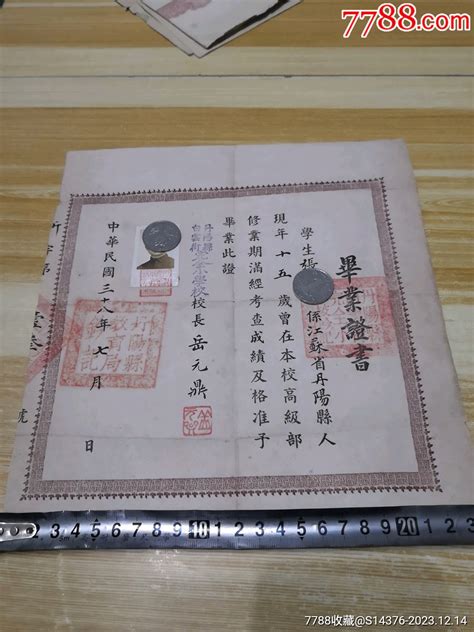 7788.com
畢業證書
學生張
係江蘇省丹陽縣人
現年十五歲曾在本校高級部
修業期滿經考查成績及格准予
畢業此證
小學校校長岳元鼎
中華民國三十八年七月
日
號
丹陽縣
教育局
2 3 4 5 6 7 8 9 10 1 2 3 4 5 6 7 8 9 20 1 2 3
7788收藏@S14376-2023.12.14